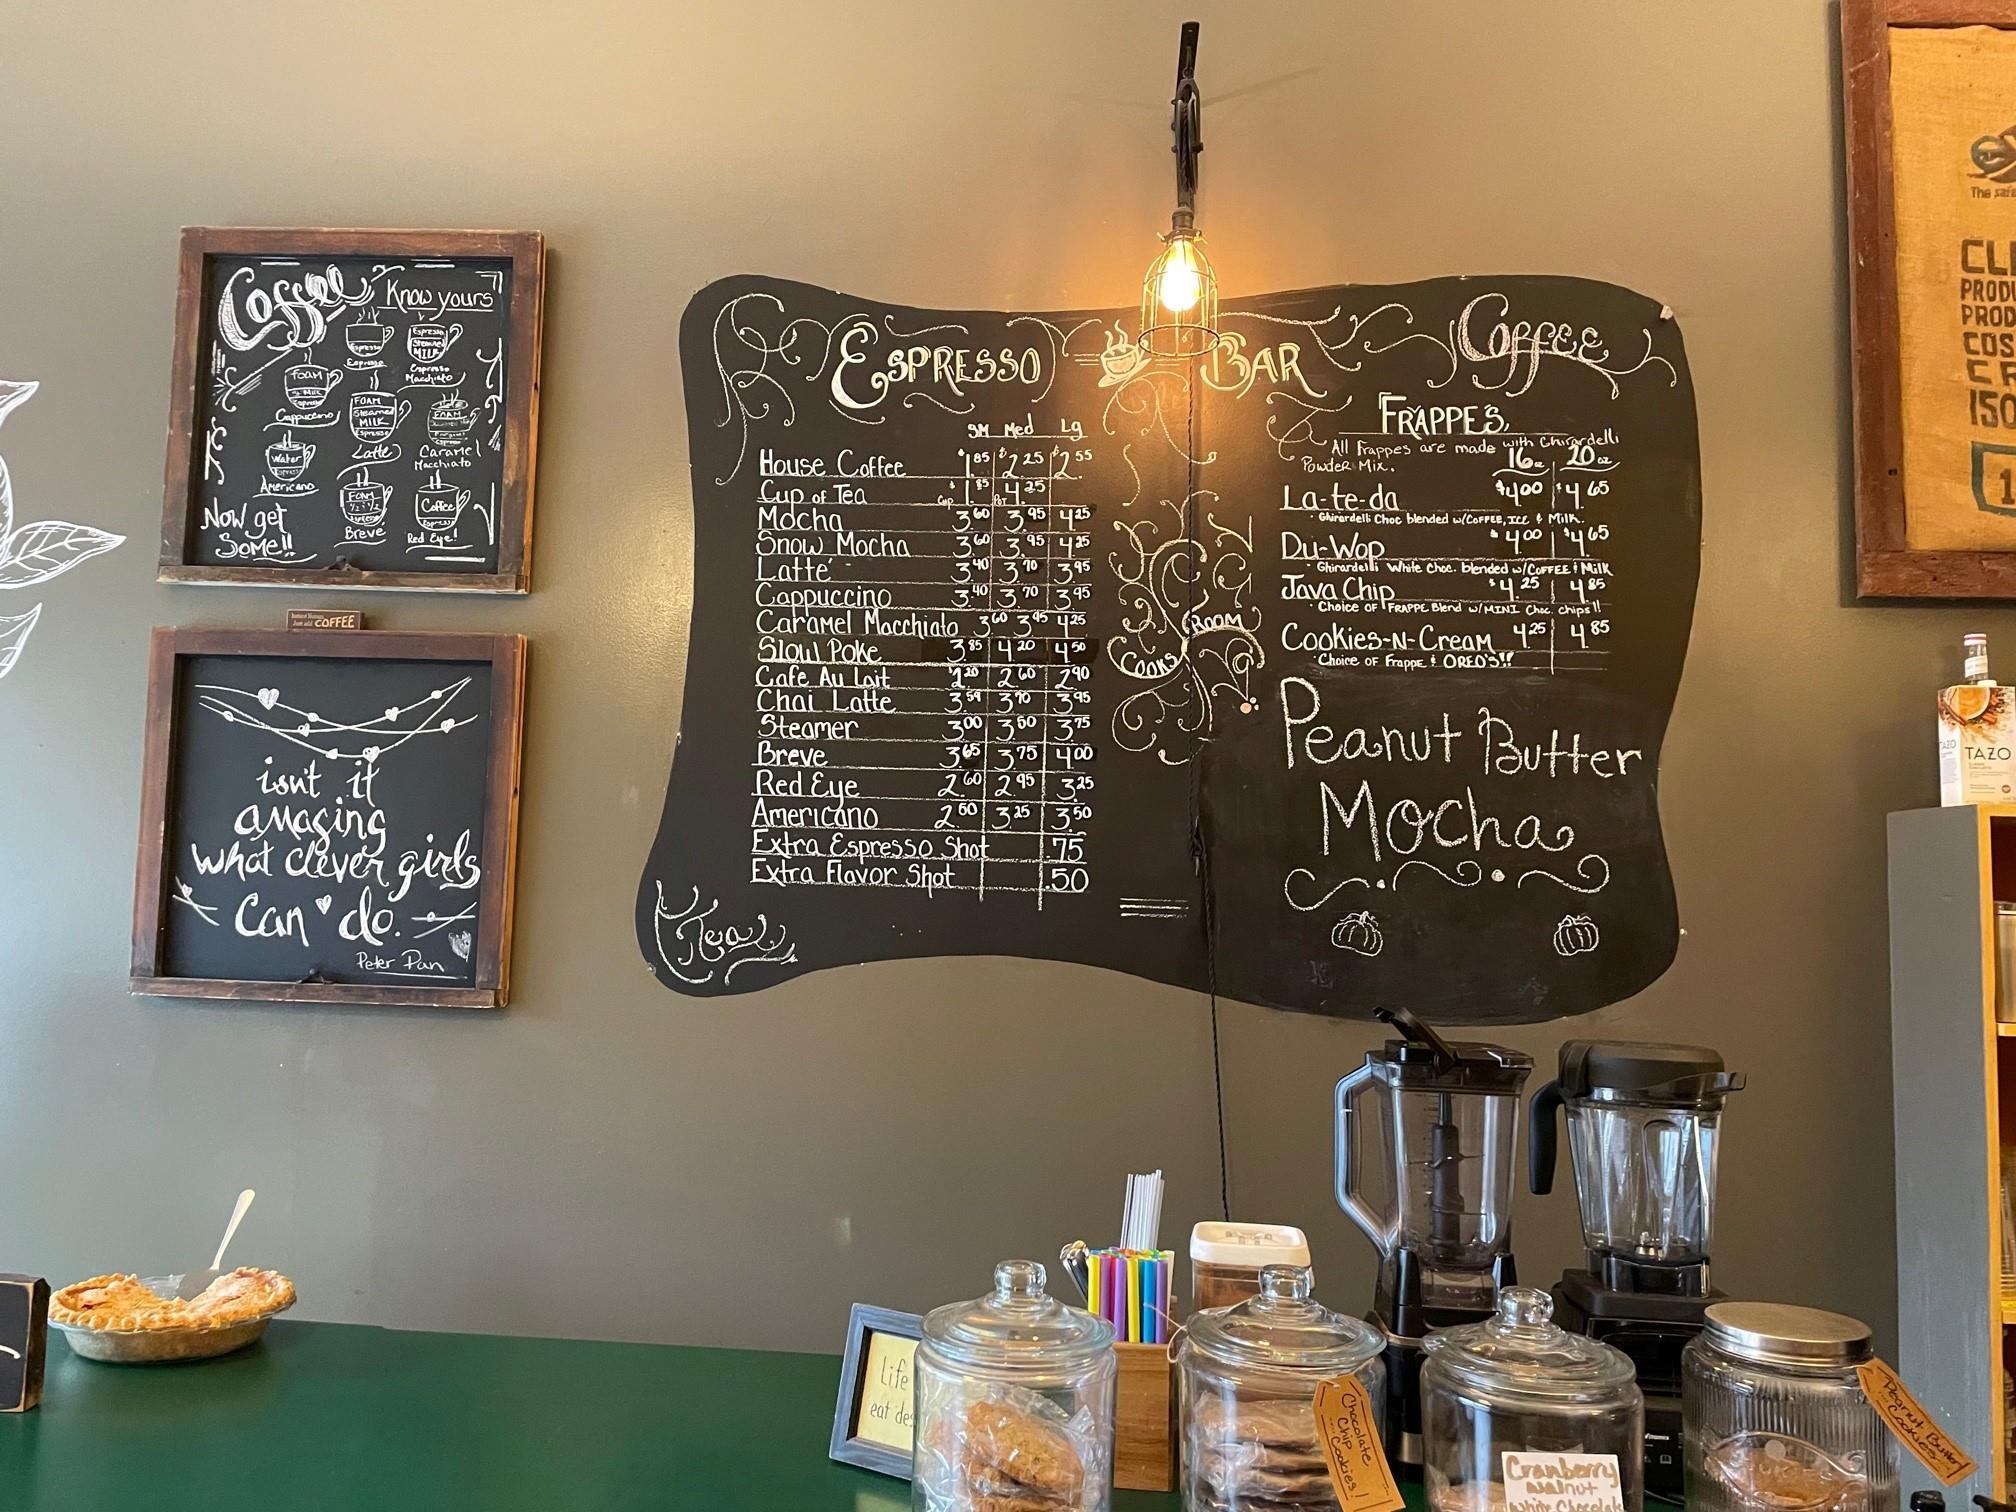 Coffee
Know yours
Espresso
Espresso
Espresso
Steamed
MILK
Espresso
Macchiato
FOAM
Espresso
Cappuccino
FOAM
Steamed
MILK
Espresso
Latte
FOAM
Caramel
Macchiato
Water
Espresso
Americano
FOAM
1/2 + 1/2
Espresso
Breve
Coffee
Espresso
Red Eye!
Now get
Some!!
Just add COFFEE
isn't it
amazing
what clever girls
can do.
Peter Pan
ESPRESSO BAR
Coffee
SM Med Lg
House Coffee $1.85 $2.25 $2.55
Cup of Tea Cup $1.85 Pot 4.25
Mocha 3.60 3.95 4.25
Snow Mocha 3.60 3.95 4.25
Latte 3.40 3.70 3.95
Cappuccino 3.40 3.70 3.95
Caramel Macchiato 3.60 3.95 4.25
Slow Poke 3.85 4.20 4.50
Cafe Au Lait 2.20 2.60 2.90
Chai Latte 3.59 3.70 3.95
Steamer 3.00 3.50 3.75
Breve 3.65 3.75 4.00
Red Eye 2.60 2.95 3.25
Americano 2.50 3.25 3.50
Extra Espresso Shot .75
Extra Flavor Shot .50
Tea
Cooks
ROOM
FRAPPES
All Frappes are made with Ghirardelli
Powder Mix. 16oz 20oz
La-te-da $4.00 $4.65
· Ghirardelli Choc blended w/COFFEE, ICE & Milk.
Du-Wop $4.00 $4.65
· Ghirardelli White Choc. blended w/COFFEE & Milk
Java Chip $4.25 4.85
· Choice of FRAPPE Blend w/MINI Choc. chips!!
Cookies-N-Cream 4.25 4.85
· Choice of Frappe & OREO'S!!
Peanut Butter
Mocha
The safe
CLI
PRODU
PROD
COS
CR
150
1
TAZO
TAZO
Life
eat des
Chocolate
Chip
Cookies!
Cranberry
Walnut
White Chocolate
Peanut Butter
Cookies